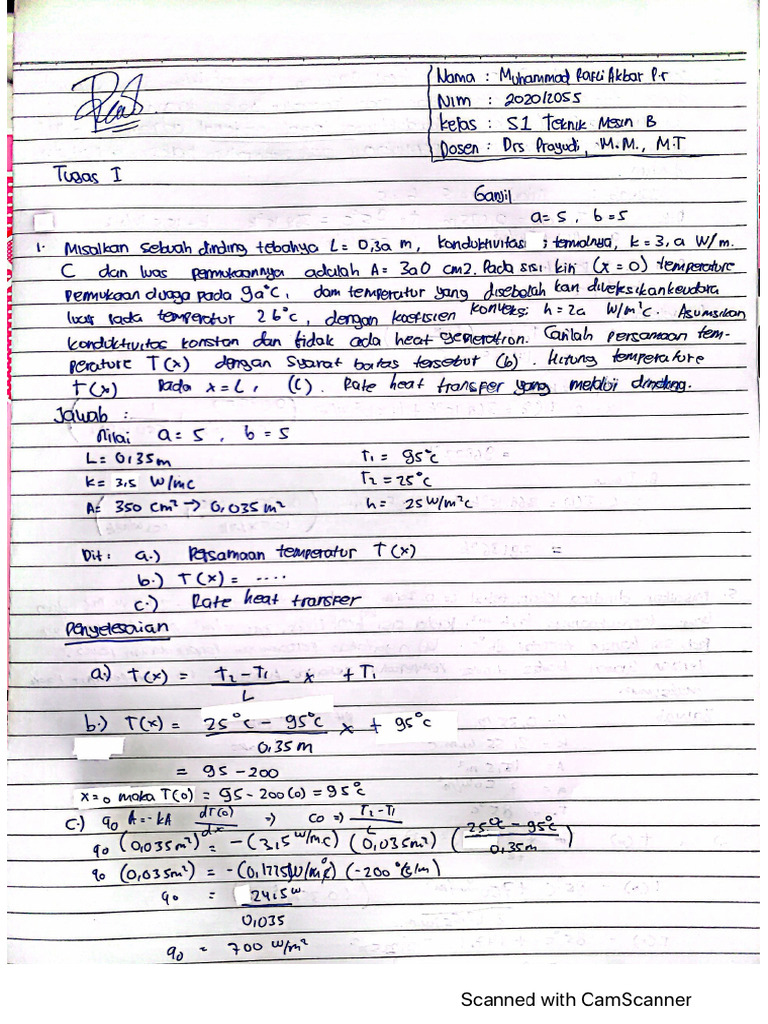 Nama : Muhammad Rafli Akbar P.r
Nim : 202012055
Kelas : S1 Teknik Mesin B
Dosen : Drs Prayudi, M.M., M.T
Tugas I
Ganjil
a= 5 , b = 5
1. Misalkan sebuah dinding tebalnya L= 0,3a m, konduktivitas ; termalnya, k = 3, a W/m.
C dan luas permukaannya adalah A= 3a0 cm2. Pada sisi kiri (x = 0) temperature
permukaan dijaga pada 9a°C, dam temperatur yang disebelah kan diveksikankeudara
luar pada temperatur 2b°c, dengan koefisien konveksi h = 2a W/m²C. Asumsikan
konduktivitas konstan dan tidak ada heat generation. Carilah persamaan tem-
perature T(x) dengan syarat batas tersebut (b). Hitung temperature
T(x) Pada x = L, (c). Rate heat transfer yang melalui dinding.
Jawab :
Nilai a= 5 , b = 5
L= 0,35m T₁ = 95°c
K= 3,5 W/mc T₂ = 25°C
A= 350 cm² → 0,035 m² h= 25 W/m²c
Dit : a.) Persamaan temperatur T(x)
b.) T(x) = ....
c.) Rate heat transfer
Penyelesaian
a.) T(x) = T₂ - T₁ / L x + T₁
b.) T(x) = 25°c - 95°c / 0,35 m x + 95°c
= 95 - 200
x=0 maka T(0) = 95 - 200(0) = 95°c
c.) q0 A = -kA dT(0)/dx => co => T₂-T₁/L
q0 (0,035m²) = -(3,5 W/mc) (0,035m²) (25°c - 95°c / 0,35m)
q0 (0,035m²) = -(0,1225W/m°c) (-200 °c/m)
q0 = 24,5 w / 0,035
q0 = 700 W/m²
Scanned with CamScanner